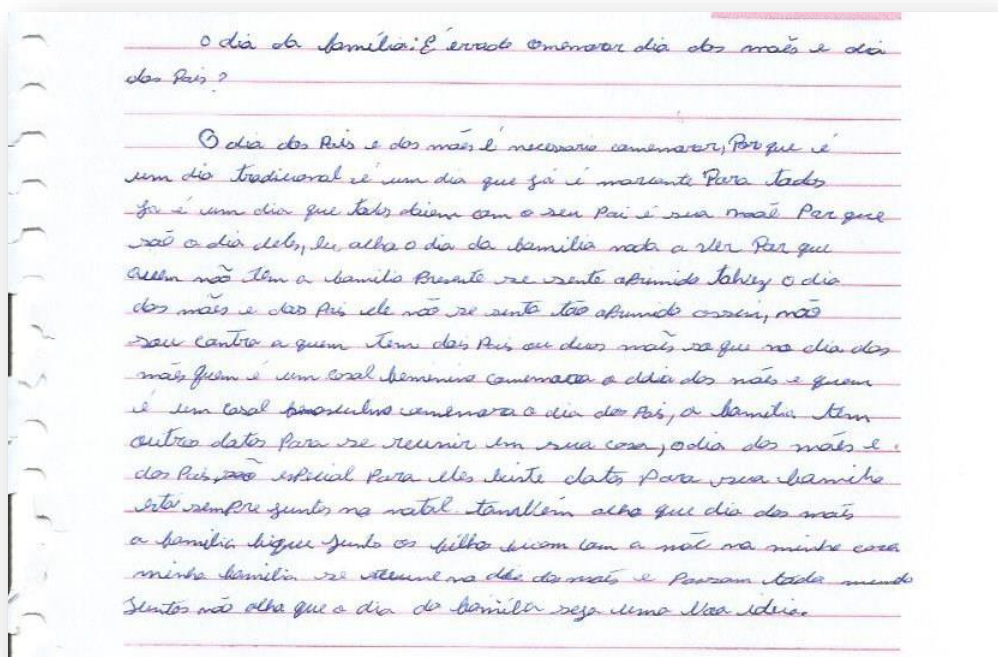 o dia da família: É errado comemorar dia das mães e dia
dos Pais?
O dia dos Pais e dos mães é necessario comemorar, Por que é
um dia tradicional é um dia que já é marcante Para todos
Ja é um dia que todos com o seu Pai é sua maẽ Por que
saõ o dia deles, Eu acho o dia da familia nada a ver Por que
quem não tem a familia Presente se sente oprimido talvez o dia
das mães e dos Pais ele não se sinta tão oprimido assim, não
sou contra a quem tem dois Pais ou duas maẽs so que no dia das
mães quem é um casal femenino comemora o ddia das mães e quem
é um casal comemora o dia dos Pais, a familia tem
outras datas Para se reunir em sua casa, o dia das maẽs e
dos Pais, especial Para eles datas Para sua familia
está sempre juntos no natal também acho que dia das maẽs
a familia fique junto os filhos com a mãe na minha casa
minha familia se reune no dia das maẽs e Passam todo mundo
Juntos não acho que o dia da familia seja uma boa ideia.